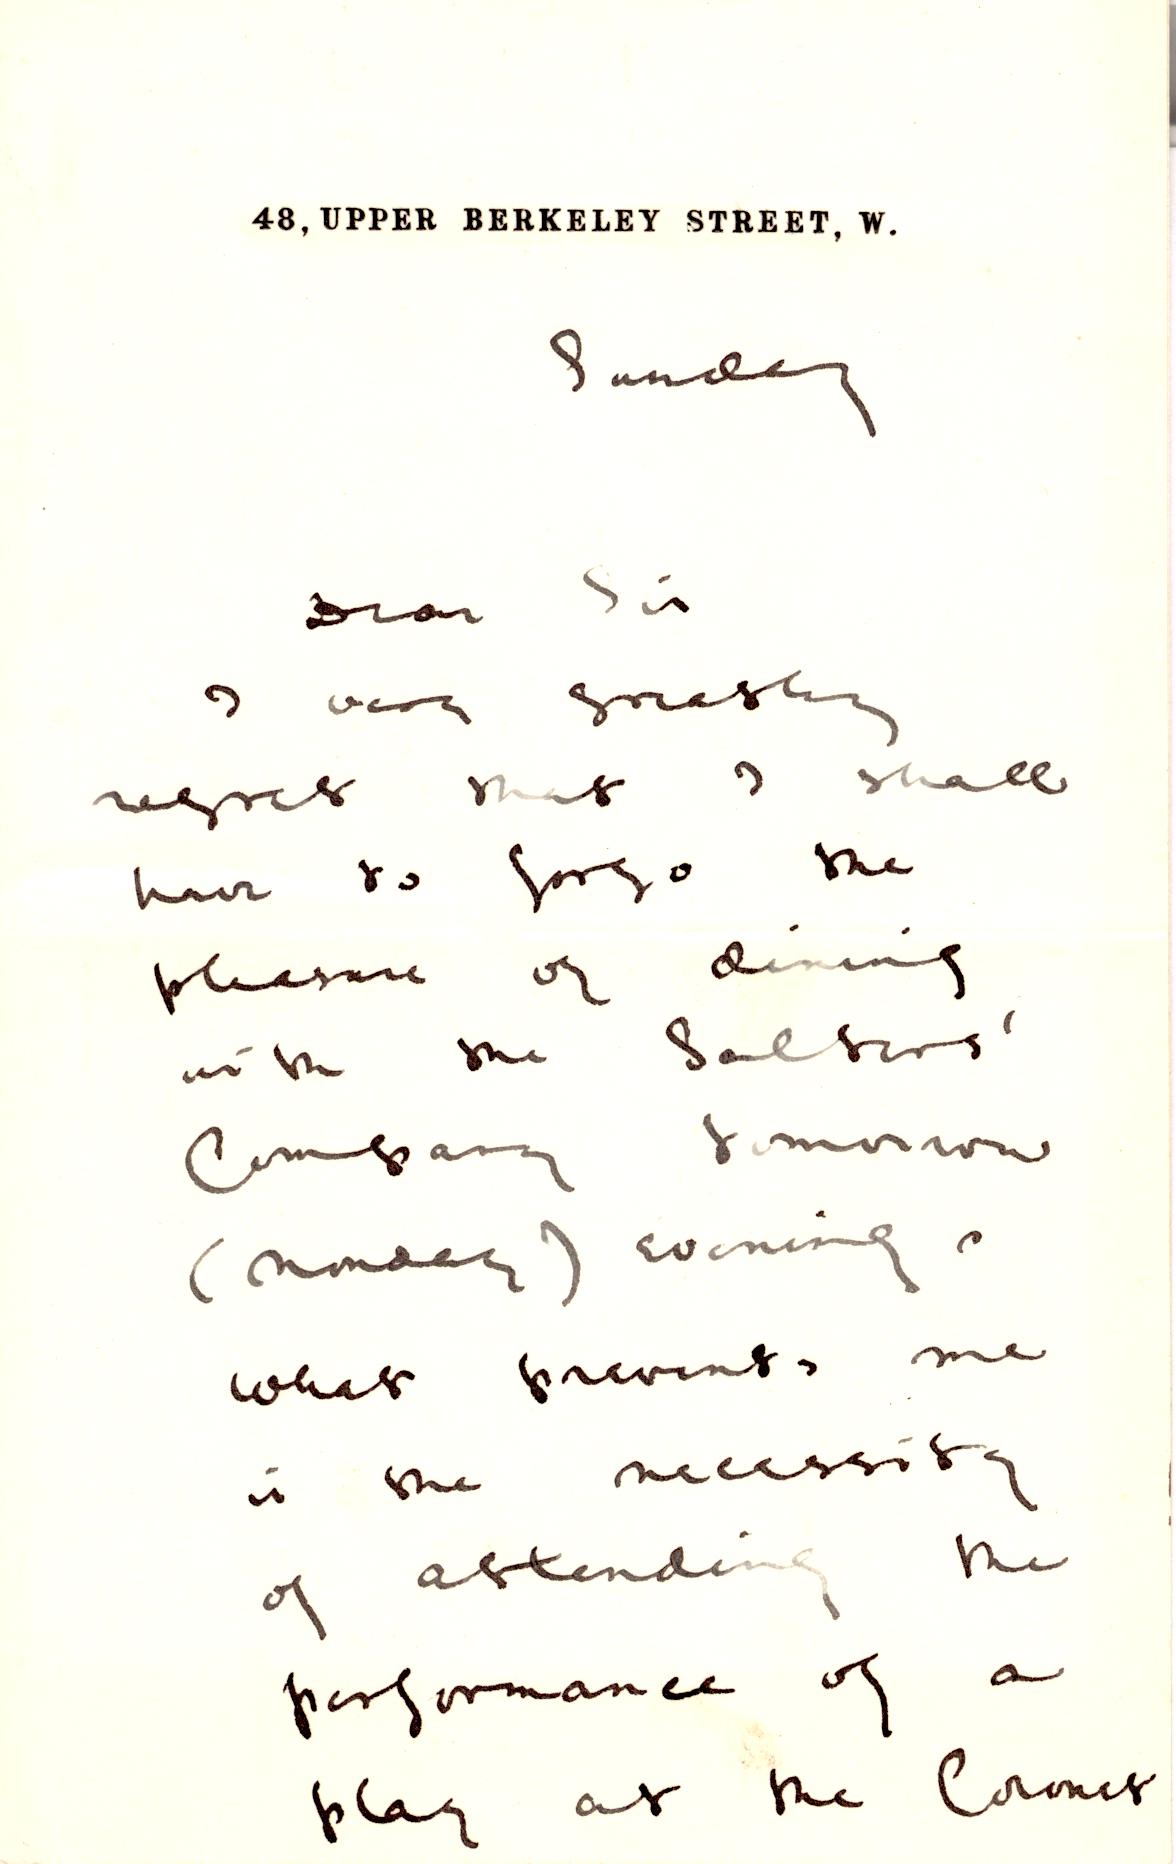 48, UPPER BERKELEY STREET, W.
Sunday
Dear Sir
I very greatly
regret that I shall
have to forgo the
pleasure of dining
with the Salters'
Company tomorrow
(Monday) evening.
What prevents me
is the necessity
of attending the
performance of a
play at the Coronet